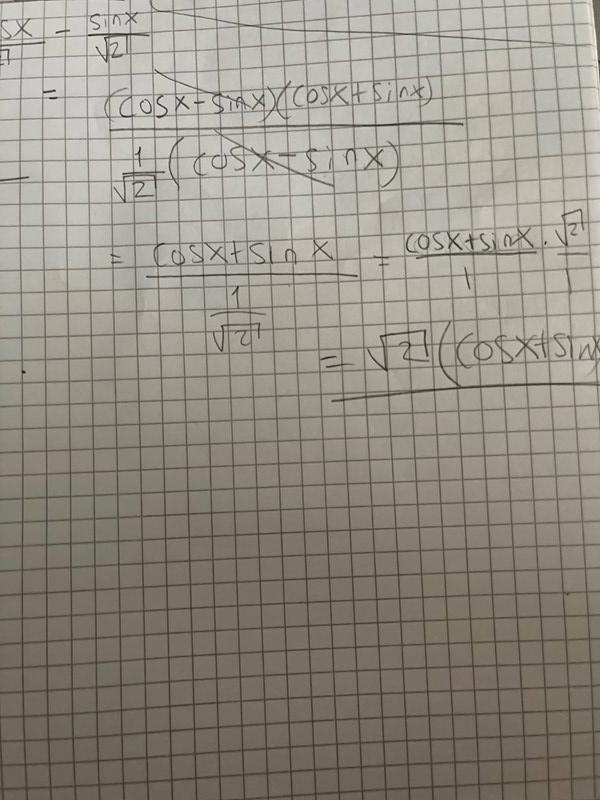 sx/√2 - sinx/√2
= (cosx-sinx)(cosx+sinx)
1/√2 (cosx-sinx)
= cosx+sinx / 1/√2 = cosx+sinx/1 · √2/1
= √2(cosx+sinx